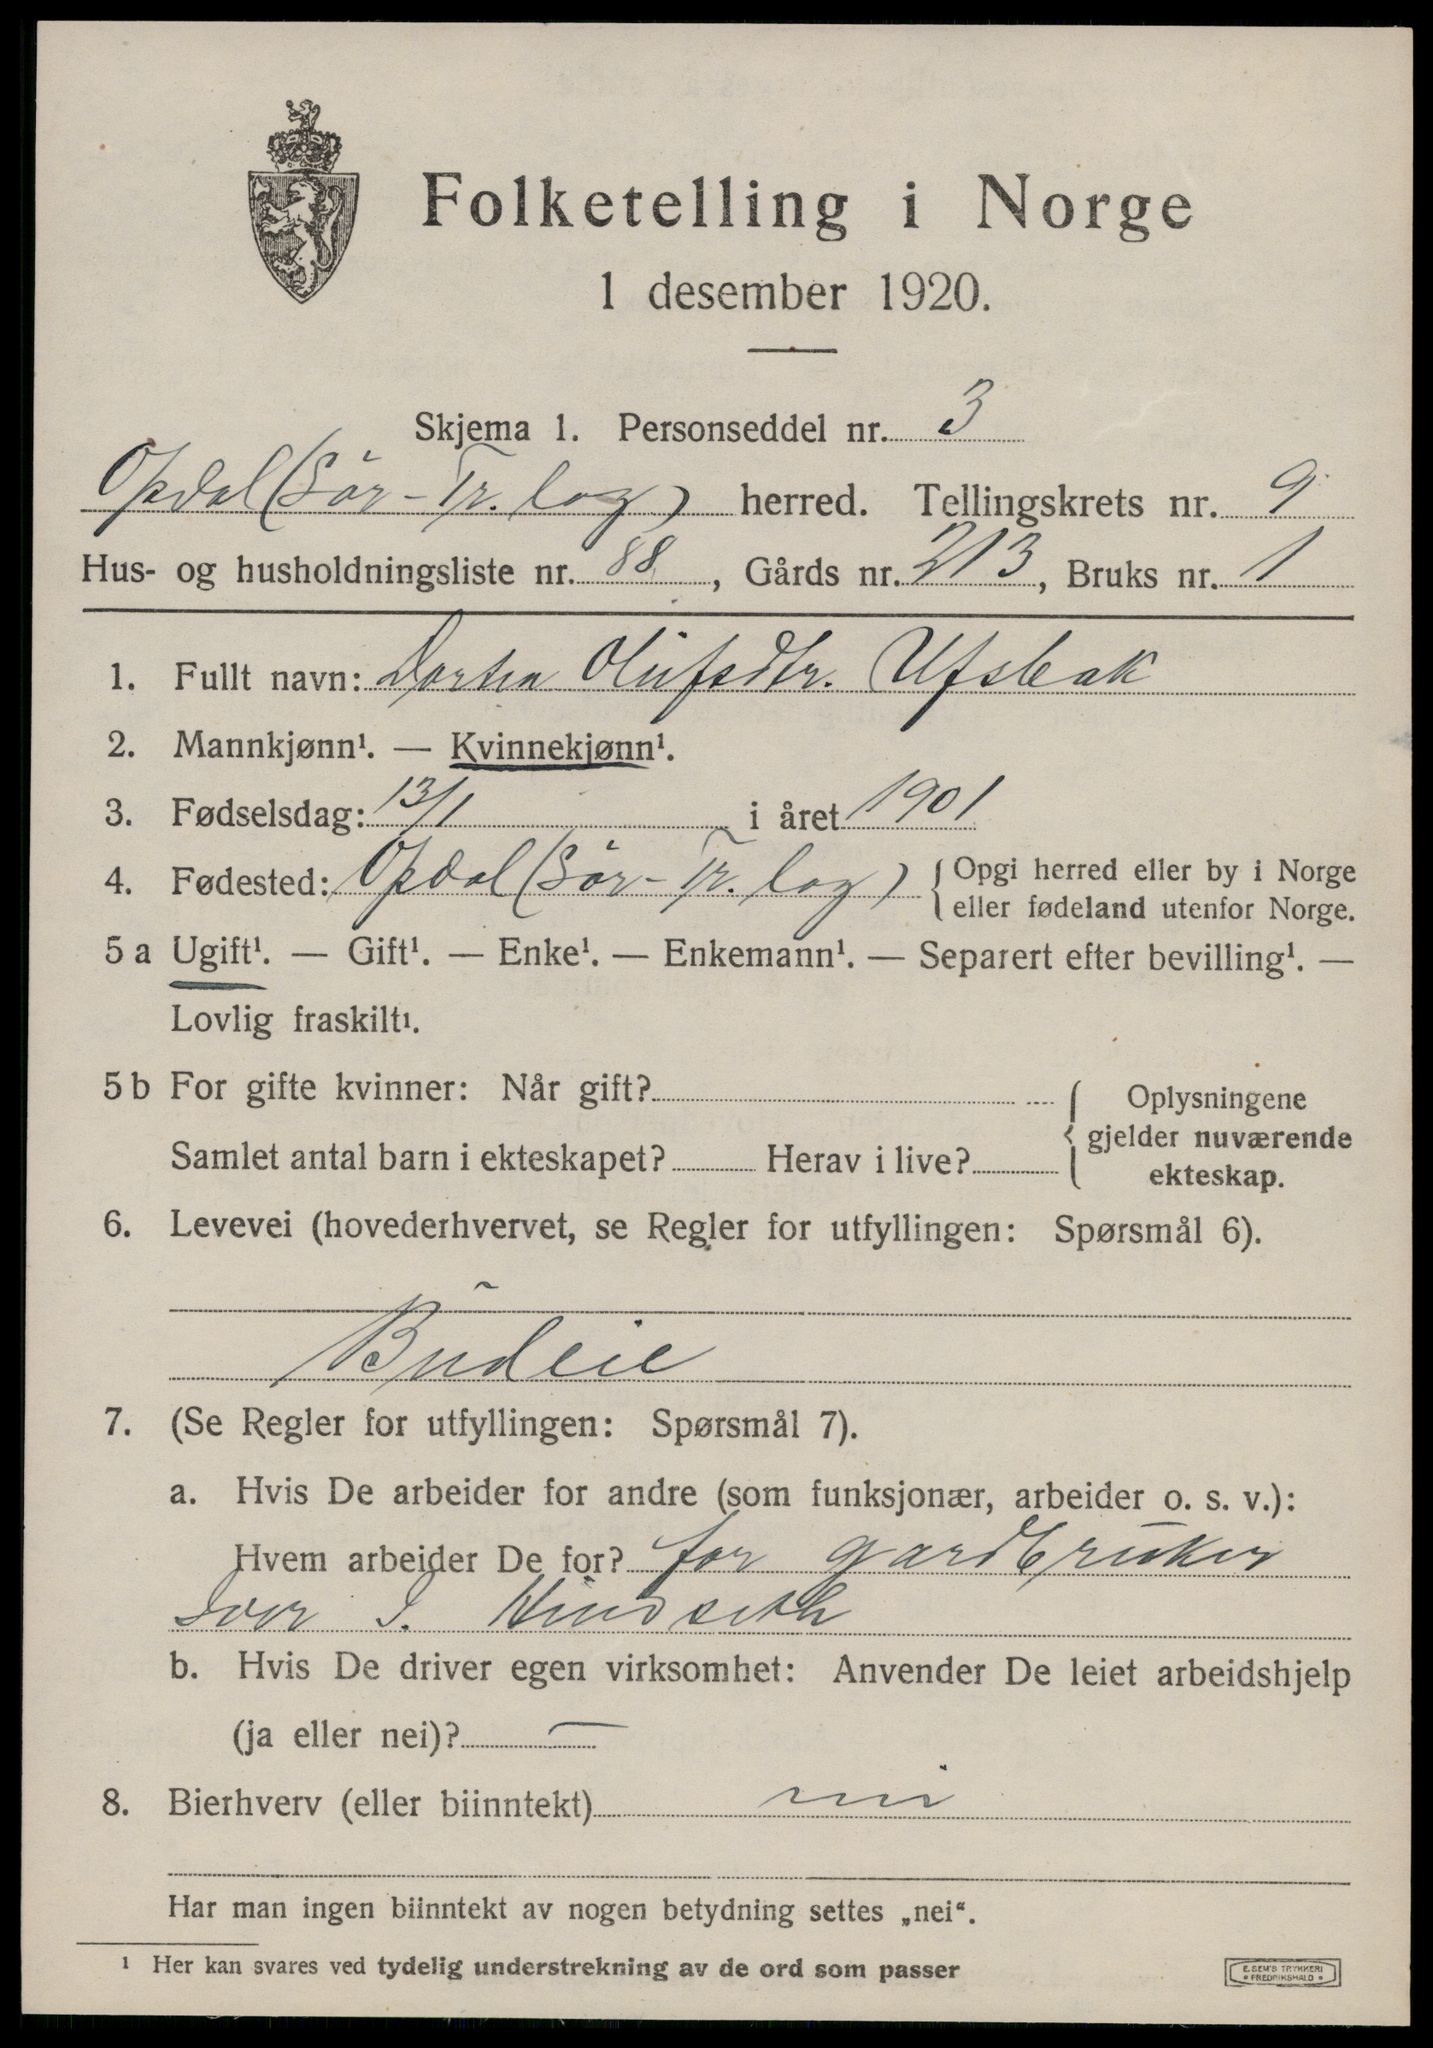 Folketelling i Norge
1 desember 1920.
Skjema 1. Personseddel nr. 3
Opdal (Sör-Tr.lag) herred. Tellingskrets nr. 9
Hus- og husholdningsliste nr. 88, Gårds nr. 213, Bruks nr. 1
1. Fullt navn: Dortea Olufsdtr. Ufsbak
2. Mannkjønn¹. — Kvinnekjønn¹.
3. Fødselsdag: 13/1 i året 1901
4. Fødested: Opdal (Sör-Tr.lag) { Opgi herred eller by i Norge
eller fødeland utenfor Norge.
5 a Ugift¹. — Gift¹. — Enke¹. — Enkemann¹. — Separert efter bevilling¹. —
Lovlig fraskilt¹.
5 b For gifte kvinner: Når gift? { Oplysningene
gjelder nuværende
ekteskap.
Samlet antal barn i ekteskapet? Herav i live?
6. Levevei (hovederhvervet, se Regler for utfyllingen: Spørsmål 6).
Budeie
7. (Se Regler for utfyllingen: Spørsmål 7).
a. Hvis De arbeider for andre (som funksjonær, arbeider o. s. v.):
Hvem arbeider De for? for gardbruker
Ivor I. Vindseth
b. Hvis De driver egen virksomhet: Anvender De leiet arbeidshjelp
(ja eller nei)? —
8. Bierhverv (eller biinntekt) nei
Har man ingen biinntekt av nogen betydning settes „nei“.
¹ Her kan svares ved tydelig understrekning av de ord som passer
E. SEM'S TRYKKERI
• FREDRIKSHALD •